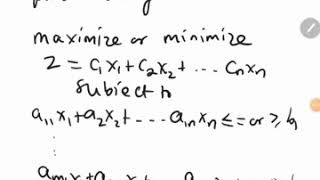 maximize or minimize
Z = C₁x₁ + C₂x₂ + ... Cₙxₙ
subject to
a₁₁x₁ + a₁₂x₂ + - - - a₁ₙxₙ ≤ = or ≥ b₁
⋮